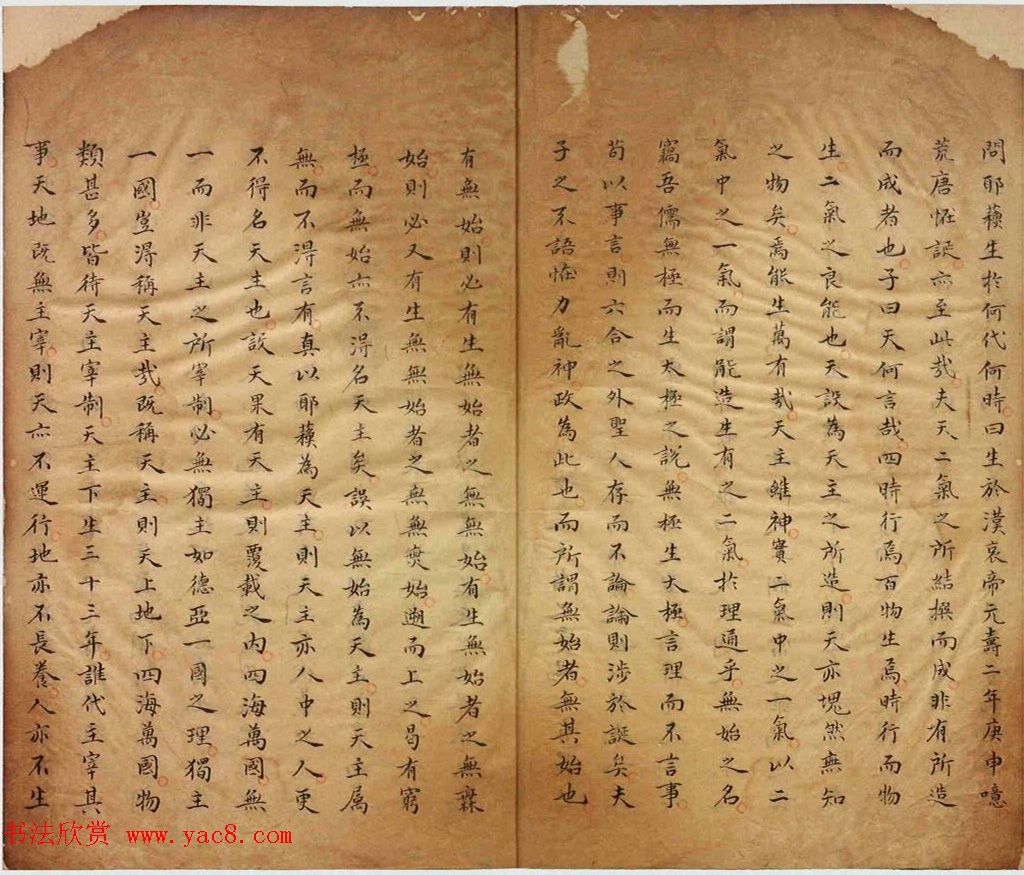 問耶穌生於何代何時曰生於漢哀帝元壽二年庚申噫
荒唐恠誕亦至此哉夫天二氣之所結撰而成非有所造
而成者也子曰天何言哉四時行焉百物生焉時行而物
生二氣之良能也天設為天主之所造則天亦塊然無知
之物矣焉能生萬有哉天主雖神實二氣中之一氣以二
氣中之一氣而謂能造生有之二氣於理通乎無始之名
竊吾儒無極而生太極之說無極生太極言理而不言事
苟以事言則六合之外聖人存而不論論則涉於誕矣夫
子之不語恠力亂神政為此也而所謂無始者無其始也
有無始則必有生無始者之無無始有生無始者之無無
始則必又有生無無始者之無無煑始遡而上之曷有窮
極而無始亦不得名天主矣誤以無始為天主則天主属
無而不得言有真以耶穌為天主則天主亦人中之人更
不得名天主也設天果有天主則覆載之内四海萬國無
一而非天主之所宰制必無獨主如德亞一國之理獨主
一國豈得稱天主哉既稱天主則天上地下四海萬國物
類甚多皆待天主宰制天主下生三十三年誰代主宰其
事天地既無主宰則天亦不運行地亦不長養人亦不生
书法欣赏 www.yac8.com